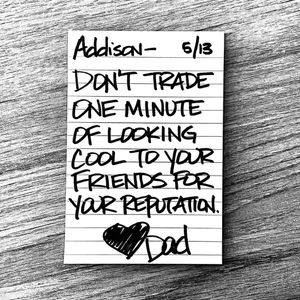 Addison- 5/13
DON'T TRADE
ONE MINUTE
OF LOOKING
COOL TO YOUR
FRIENDS FOR
YOUR REPUTATION.
Dad